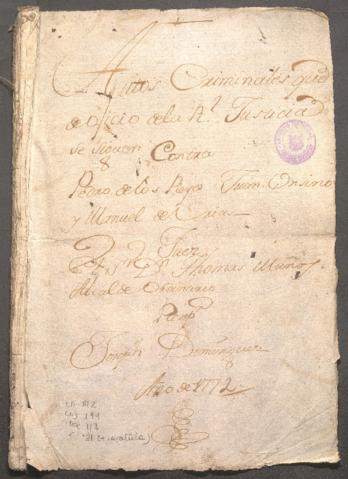 Autos Criminales que
de oficio de la Rl. Justicia
se siguen
Contra
Pedro de los Reyes Juan
y Manuel de
Juez
el Sr. Dn. Thomas Muñoz
Alcalde Ordinario
Joseph Dominguez
Año de 1772